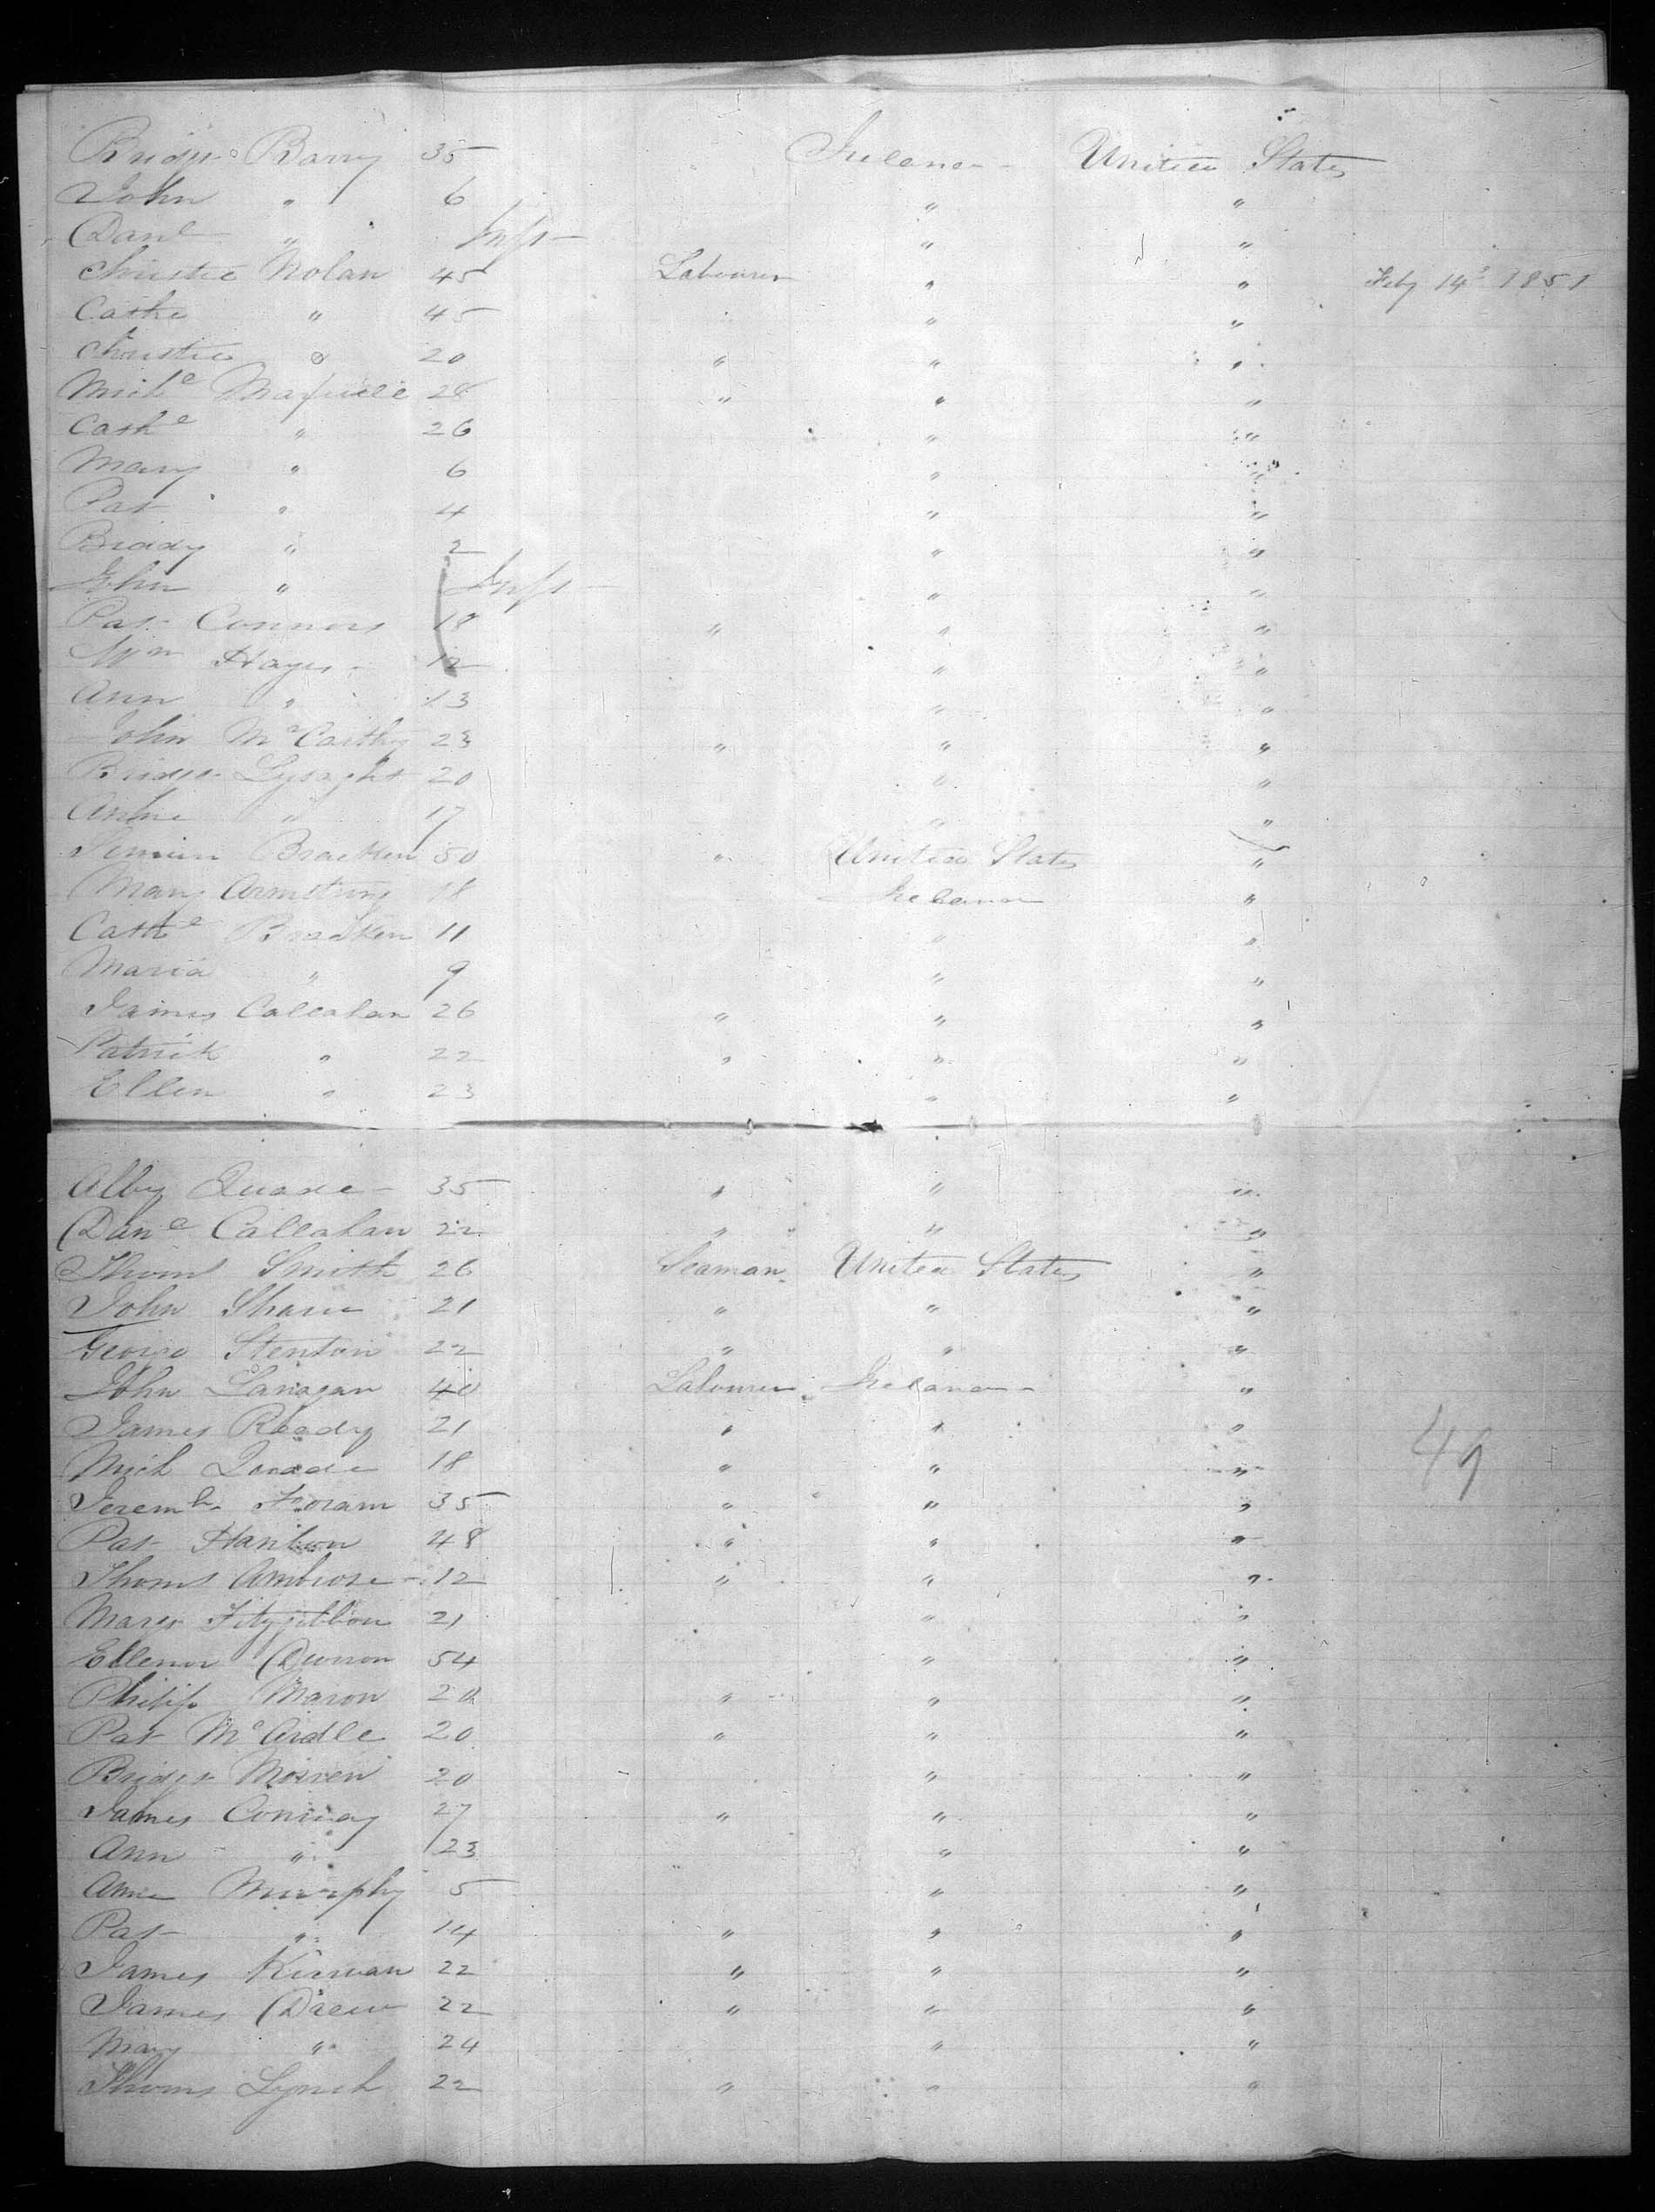 Bridgt Barry 35 Ireland United States
John " 6 " "
Danl " Inft " "
Christie Nolan 45 Labourer " " Feby 14th 1851
Cathe " 45 " "
Christie " 20 " " "
Miche 28 " " "
Cathe " 26 " "
Mary " 6 " "
Pat " 4 " "
Biddy " 2 " "
John " Inft " "
Pat Connors 18 " " "
Wm Hayes 12 " "
Ann " 13 " "
John McCarthy 23 " " "
Bridgt Lysaght 20 " "
Anne " 17 " "
Bracken 50 " United States "
Mary Armstrong 18 Ireland "
Cathe Bracken 11 " "
Maria " 9 " "
James Callahan 26 " " "
Patrick " 22 " " "
Ellen " 23 " "
Alby 35 " " "
Danl Callahan 22 " " "
Thoms Smith 26 Seaman United States "
John Shaw 21 " " "
George Stenton 22 " " "
John Lanagan 40 Labourer Ireland "
James Ready 21 " " "
Mich 18 " " "
Jeremh Foram 35 " " "
Pat Hanlon 48 " " "
Thoms Ambrose 12 " " "
Margt Fitzgibbon 21 " "
Ellenor 54 " "
Philip Maron 20 " " "
Pat McArdle 20 " " "
Bridgt 20 " "
James Conway 27 " " "
Ann " 23 " "
Anne Murphy 5 " "
Pat " 14 " " "
James Kirwan 22 " " "
James Drew 22 " " "
Mary " 24 " "
Thoms Lynch 22 " " "
49